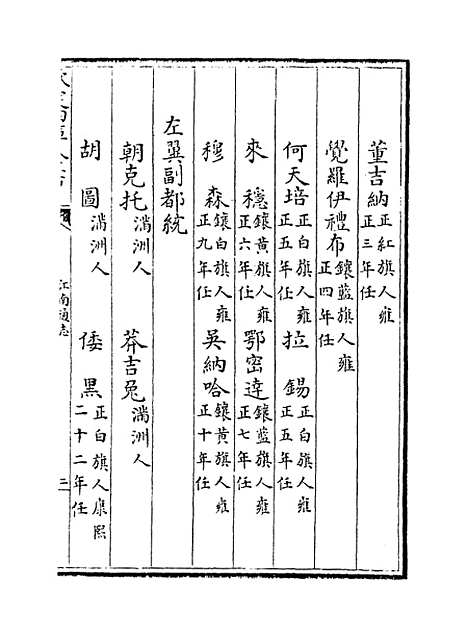 董吉納正紅旗人雍正三年任
覺羅伊禮布鑲藍旗人雍正四年任
何天培正白旗人雍正五年任 拉錫正白旗人雍正五年任
來穩鑲黃旗人雍正六年任 鄂密達鑲藍旗人雍正七年任
穆森鑲白旗人雍正九年任 吳納哈鑲黃旗人雍正十年任
左翼副都統
朝克托滿洲人 莽吉兔滿洲人
胡圖滿洲人 倭黑正白旗人康熙二十二年任
江南通志
三